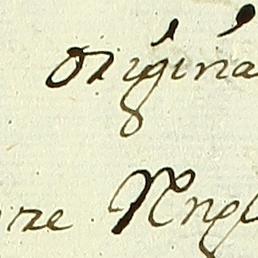 origina
re Angl